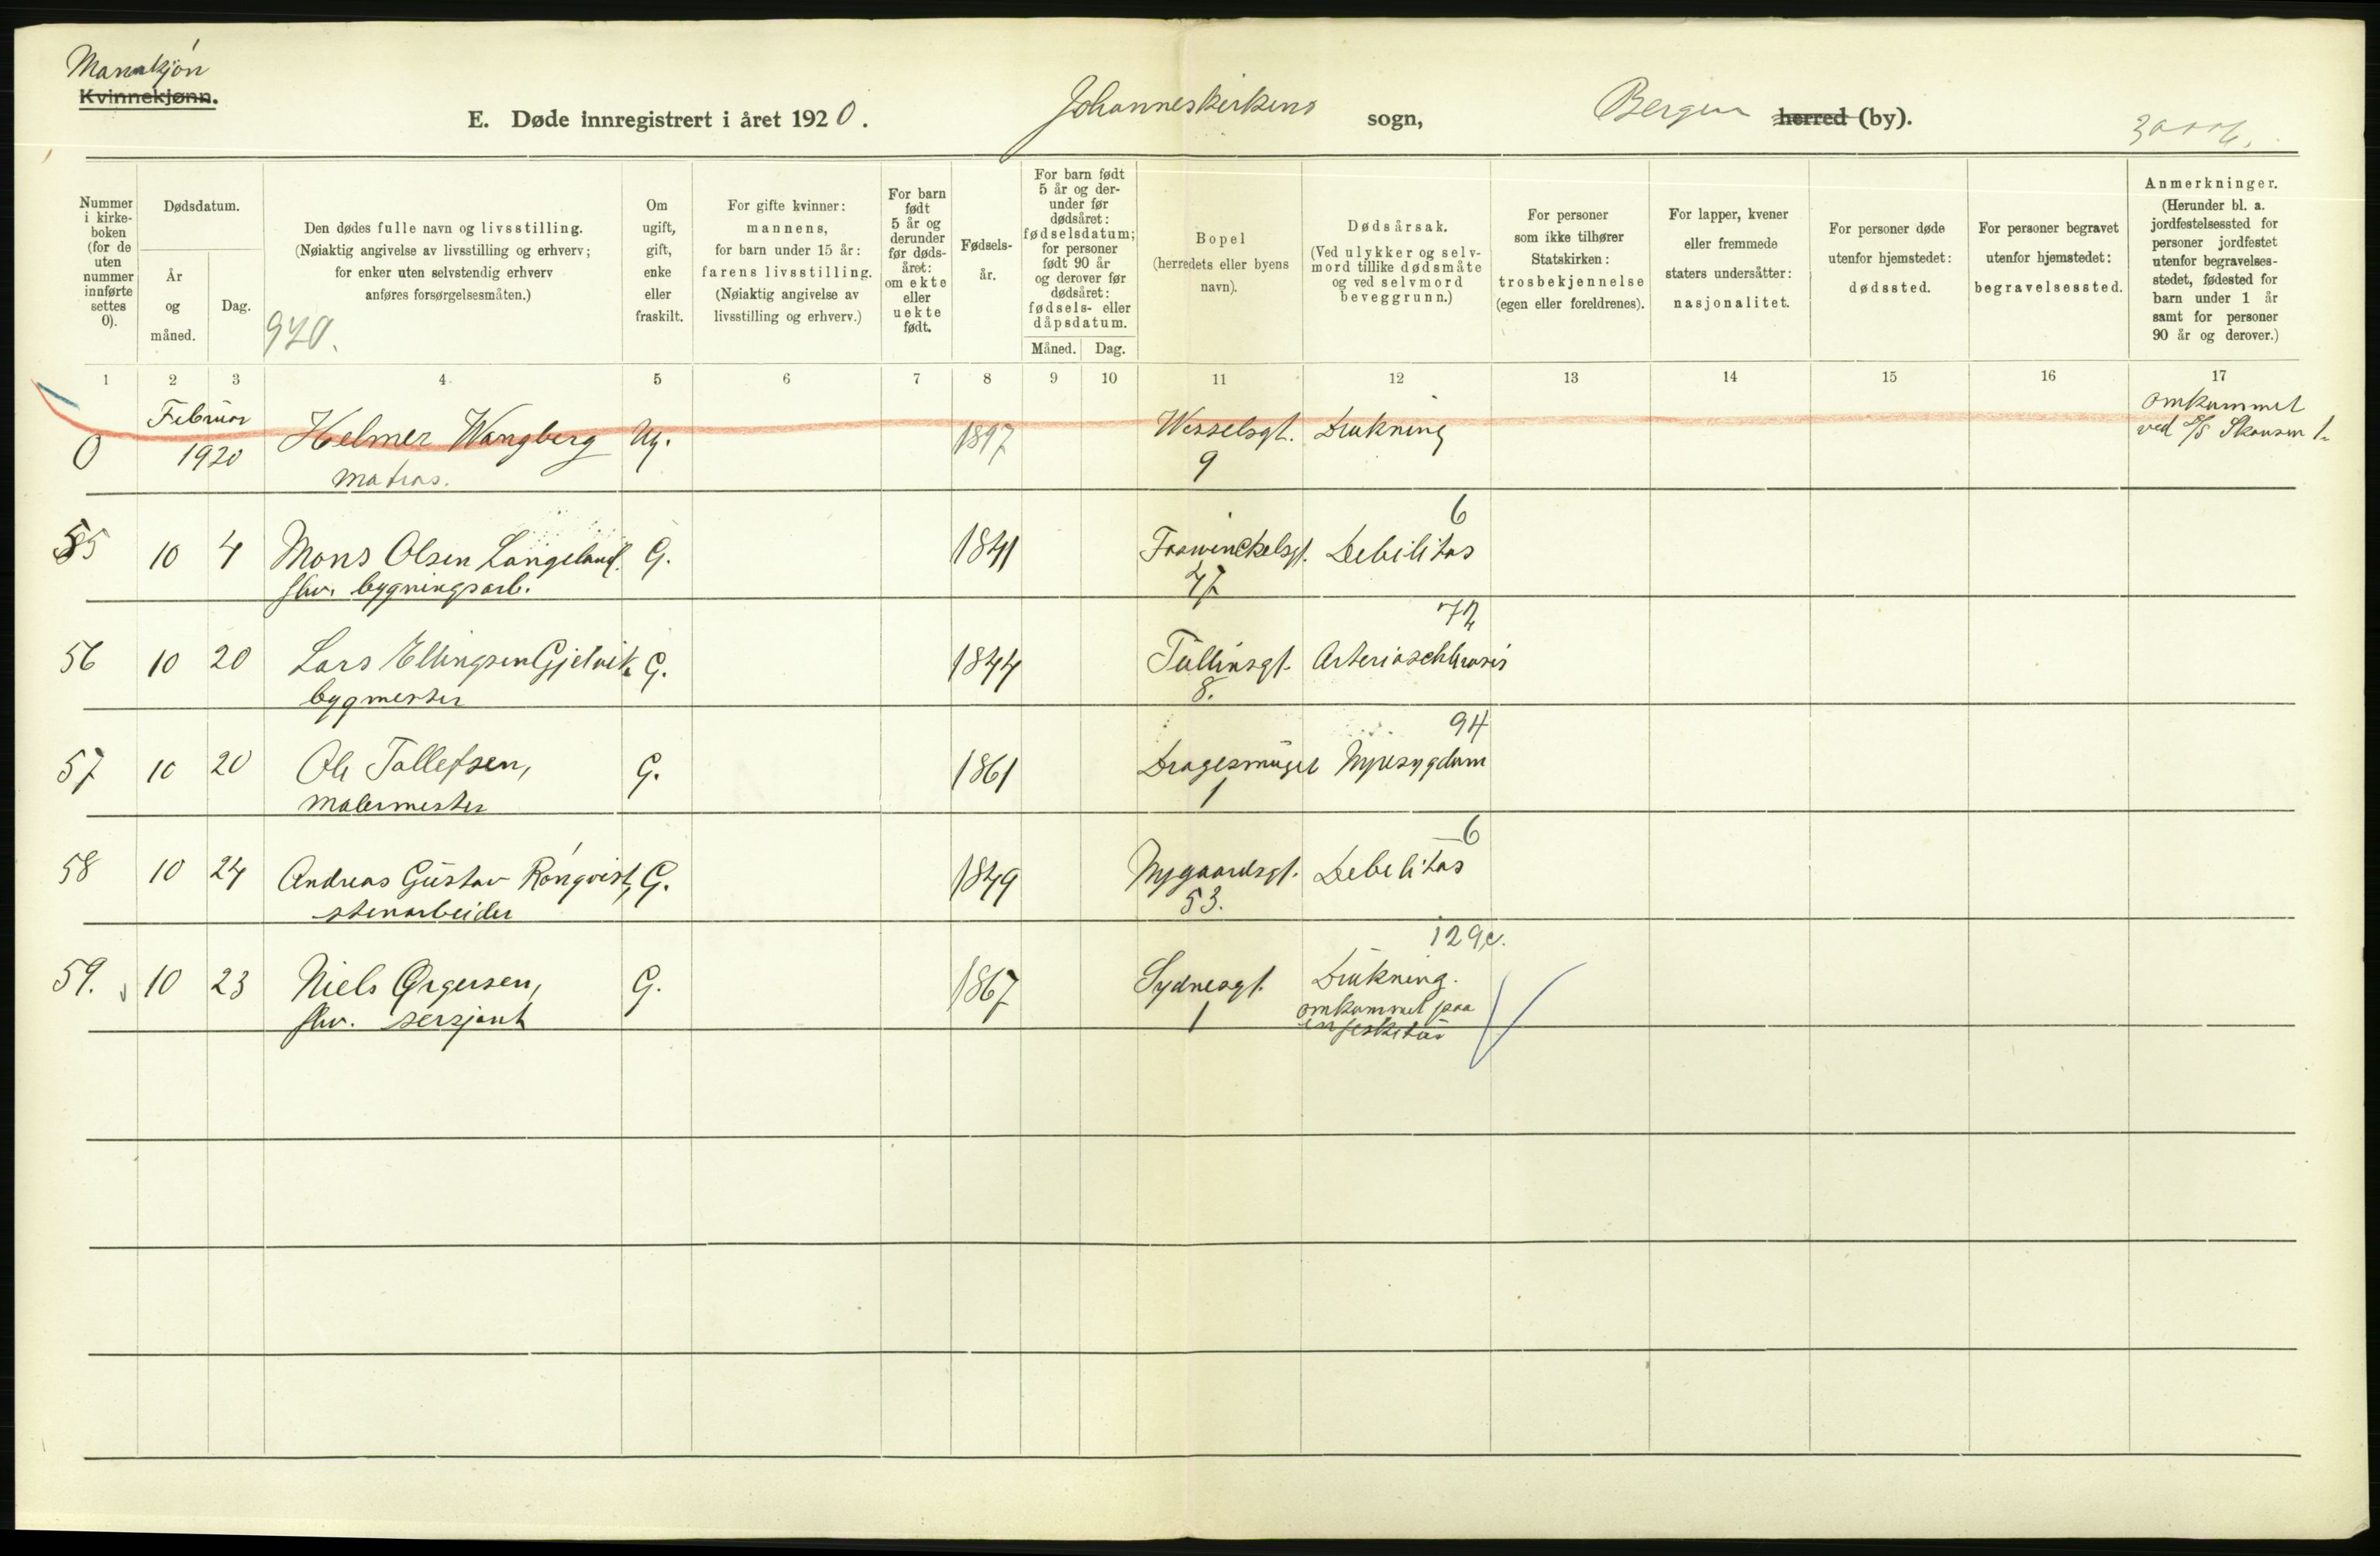 Mannkjøn
Kvinnekjønn.
E. Døde innregistrert i året 1920. Johanneskirkens sogn, Bergen herred (by).
Nummer i kirke-boken (for de uten nummer innførte settes 0).
Dødsdatum.
År og måned.
Dag.
Den dødes fulle navn og livsstilling.
(Nøiaktig angivelse av livsstilling og erhverv;
for enker uten selvstendig erhverv
anføres forsørgelsesmåten.)
920.
Om ugift, gift, enke eller fraskilt.
For gifte kvinner:
mannens,
for barn under 15 år:
farens livsstilling.
(Nøiaktig angivelse av
livsstilling og erhverv.)
For barn født 5 år og derunder før døds-året: om ekte eller uekte født.
Fødsels-år.
For barn født 5 år og der-under før dødsåret: fødselsdatum; for personer født 90 år og derover før dødsåret: fødsels- eller dåpsdatum.
Måned. Dag.
Bopel
(herredets eller byens
navn).
Dødsårsak.
(Ved ulykker og selv-
mord tillike dødsmåte
og ved selvmord
beveggrunn.)
For personer
som ikke tilhører
Statskirken:
trosbekjennelse
(egen eller foreldrenes).
For lapper, kvener
eller fremmede
staters undersåtter:
nasjonalitet.
For personer døde
utenfor hjemstedet:
dødssted.
For personer begravet
utenfor hjemstedet:
begravelsessted.
Anmerkninger.
(Herunder bl. a.
jordfestelsessted for
personer jordfestet
utenfor begravelses-
stedet, fødested for
barn under 1 år
samt for personer
90 år og derover.)
1 2 3 4. 5 6 7 8 9 10 11 12 13 14 15 16 17
0 Februar 1920 Helmer Wangberg Ug. 1897 Wesselsgt. Drukning omkommet
matros. 9 ved S/S Skausen 1.
6
55 10 4 Mons Olsen Langeland. G. 1841 Debilitas
fhv. bygningsarb. 47
56 10 20 Lars Ellingsen Gjelvik G. 1844 Tullinsgt. Arterioschlerosis
bygmester 8.
94
57 10 20 Ole Tollefsen, G. 1861 Dragesmuget Nyresygdom
malermester 1
6
58 10 24 Andreas Gustav Rönqvist, G. 1849 Nygaardsgt. Debelitas
stenarbeider 53.
129c.
59. 10 23 Niels Ørgersen, G. 1867 Sydnesgt. Drukning.
fhv. sersjant 1 omkommet paa
en fisketur